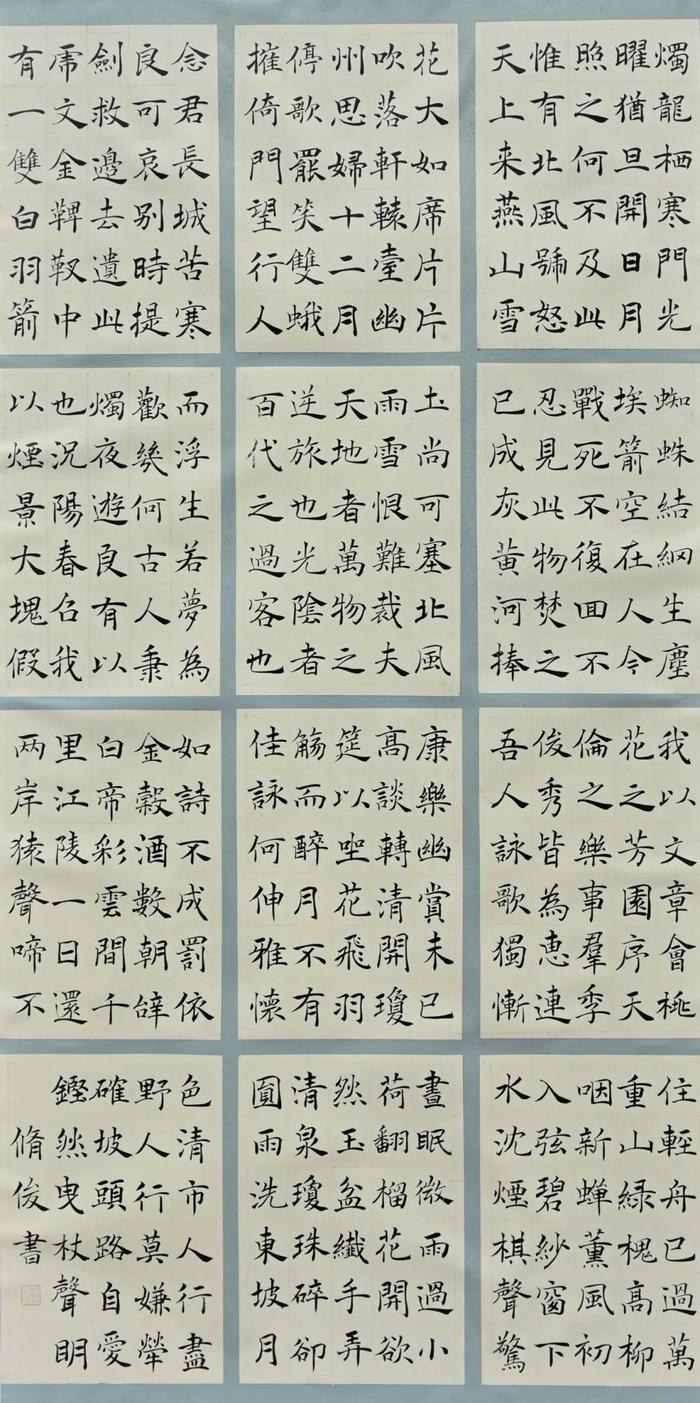 燭龍栖寒門光
曜猶旦開日月
照之何不及此
惟有北風號怒
天上来燕山雪
花大如席片片
吹落軒轅臺幽
州思婦十二月
停歌罷笑雙蛾
摧倚門望行人
念君長城苦寒
良可哀别時提
劍救邊去遺此
虎文金鞞靫中
有一雙白羽箭
蜘蛛結網生塵
埃箭空在人今
戰死不復回不
忍見此物焚之
已成灰黄河捧
土尚可塞北風
雨雪恨難裁夫
天地者萬物之
逆旅也光陰者
百代之過客也
而浮生若夢為
歡幾何古人秉
燭夜遊良有以
也況陽春召我
以煙景大塊假
我以文章會桃
花之芳園序天
倫之樂事羣季
俊秀皆為惠連
吾人詠歌獨慚
康樂幽賞未已
高談轉清開瓊
筵以坐花飛羽
觴而醉月不有
佳詠何伸雅懷
如詩不成罰依
金穀酒數朝辝
白帝彩雲間千
里江陵一日還
两岸猿聲啼不
住輕舟已過萬
重山緑槐高柳
咽新蟬薰風初
入弦碧紗窗下
水沈煙棋聲驚
晝眠微雨過小
荷翻榴花開欲
然玉盆纖手弄
清泉瓊珠碎卻
圓雨洗東坡月
色清市人行盡
野人行莫嫌犖
確坡頭路自愛
鏗然曳杖聲明
脩俊書